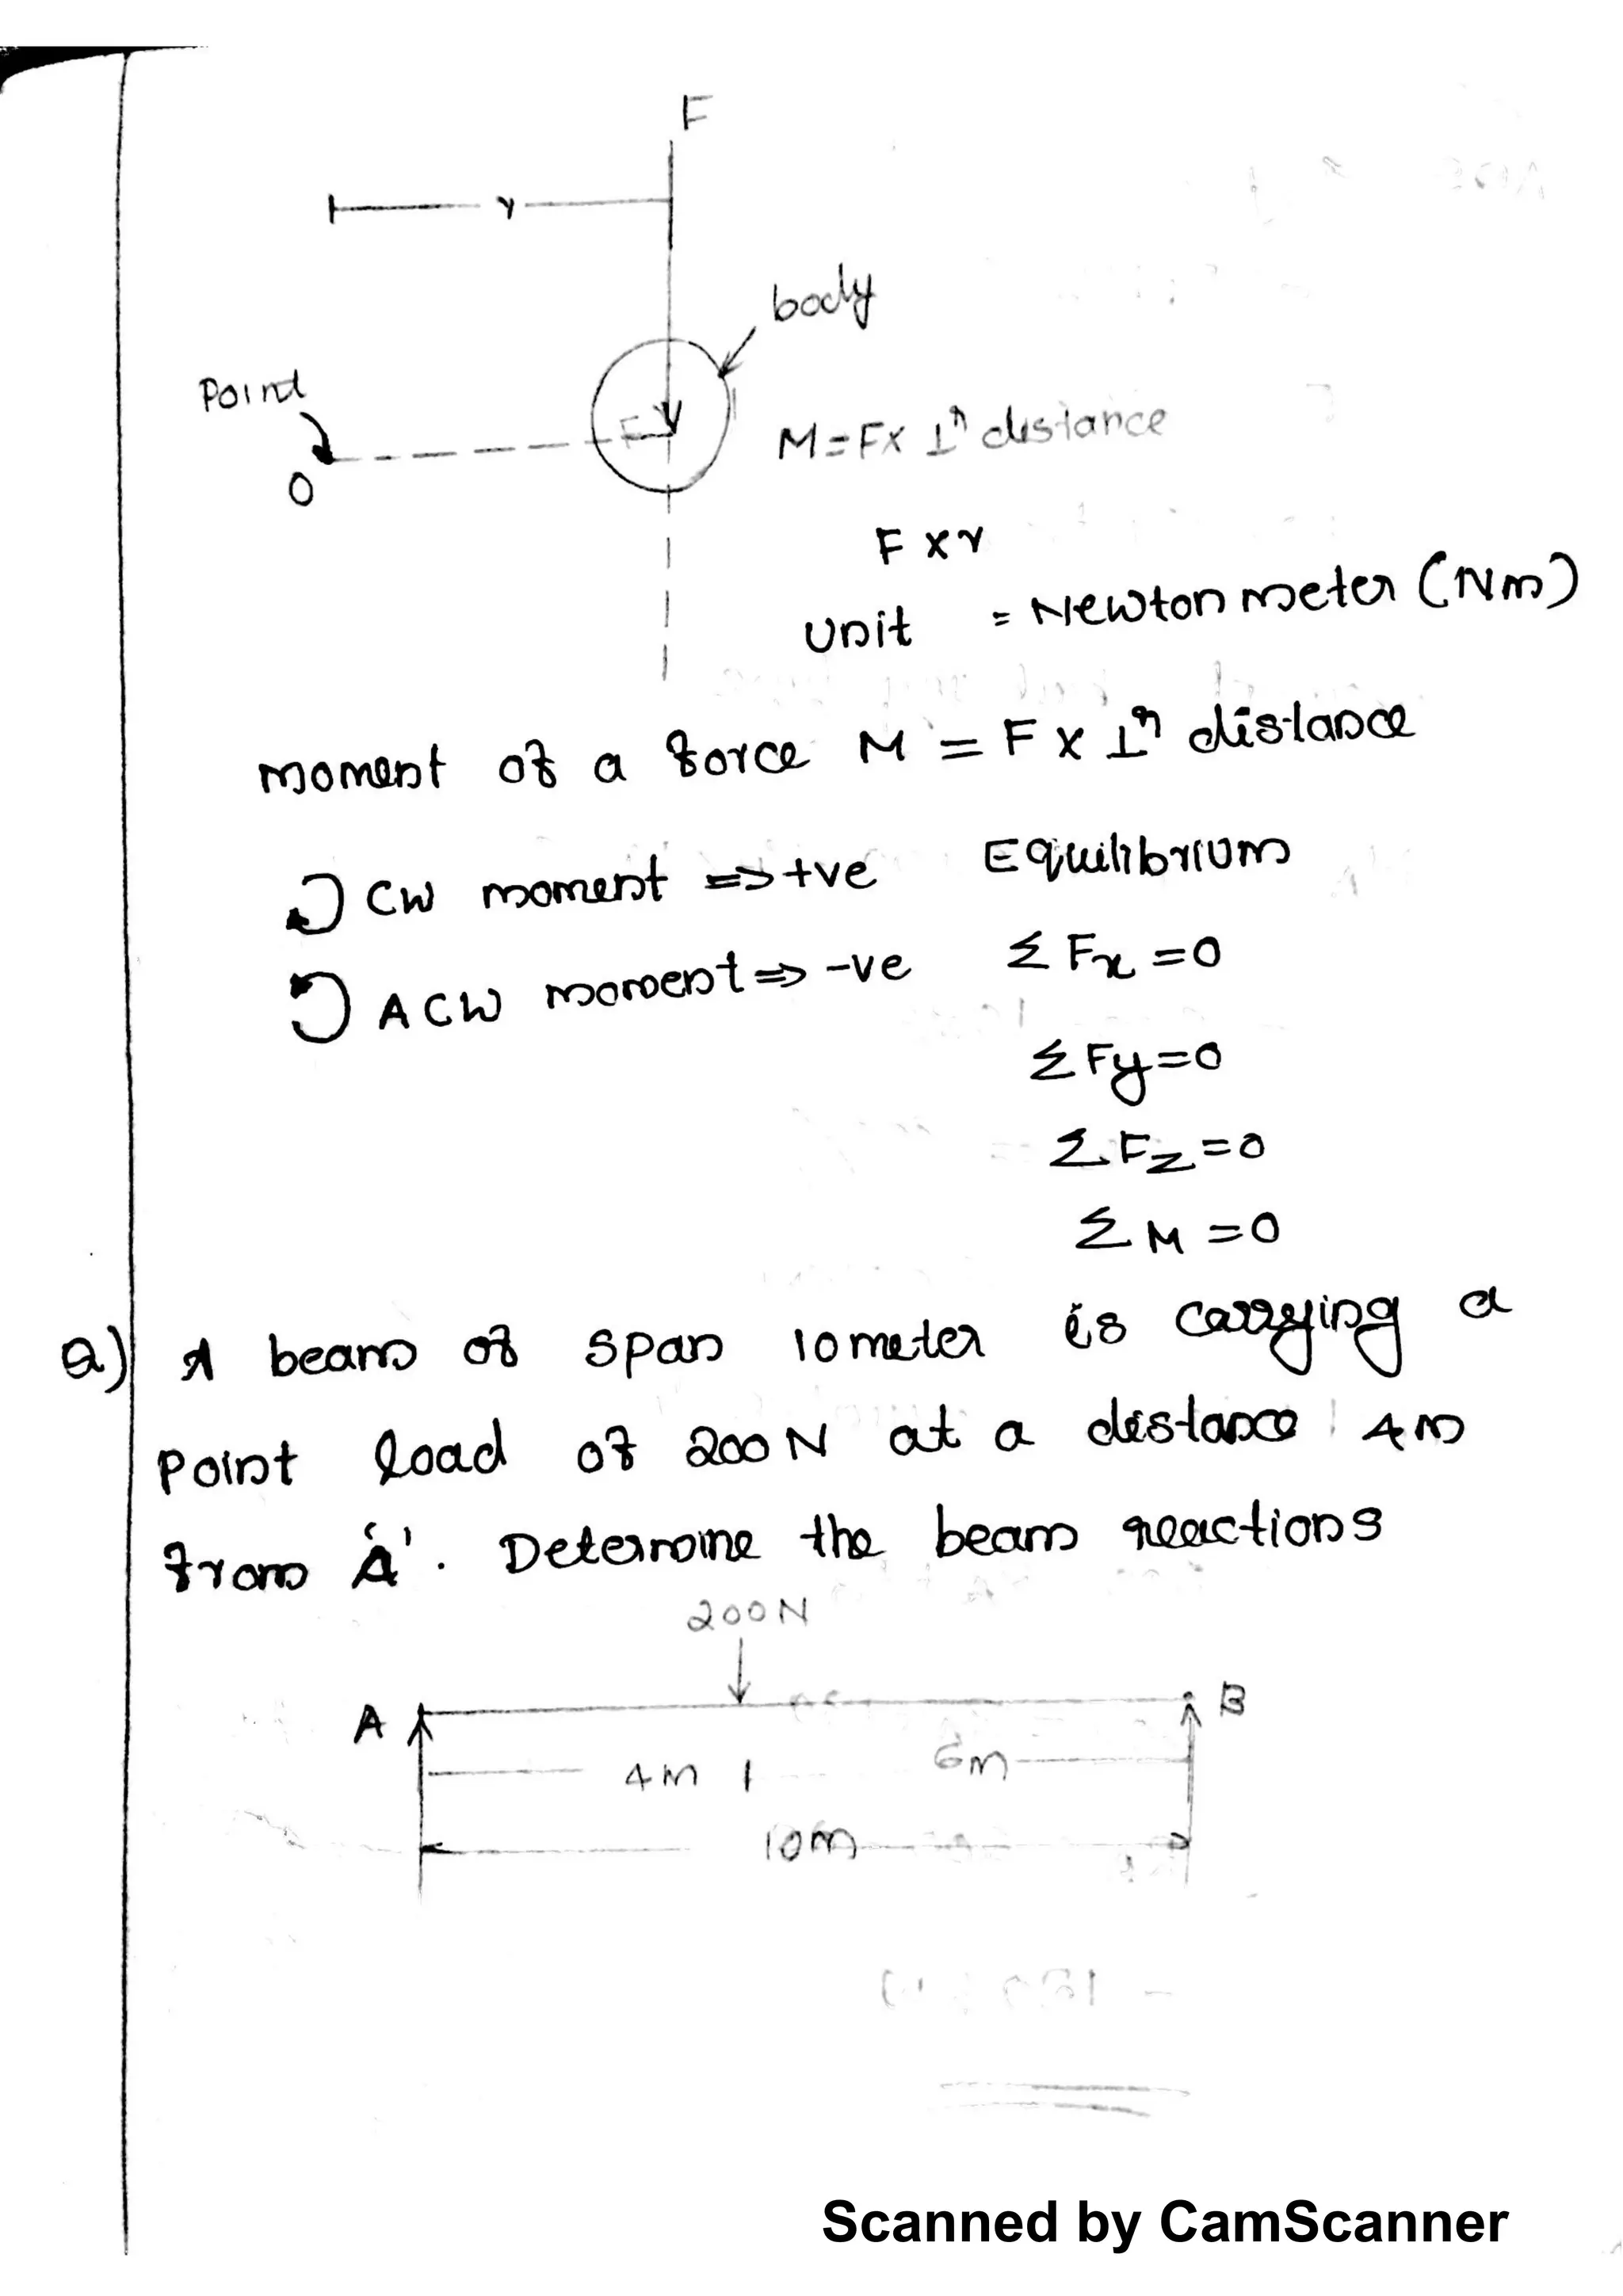 F
r
body
Point
O
F
M = F x ⊥r distance
F x r
Unit = Newton meter (Nm)
moment of a force M = F x ⊥r distance
CW moment => +ve Equilibrium
ACW moment => -ve Σ Fx = 0
Σ Fy = 0
Σ Fz = 0
Σ M = 0
Q) A beam of span 10 meter is carrying a
Point load of 200 N at a distance 4m
from 'A'. Determine the beam reactions
200N
A B
4m 6m
10m
Scanned by CamScanner